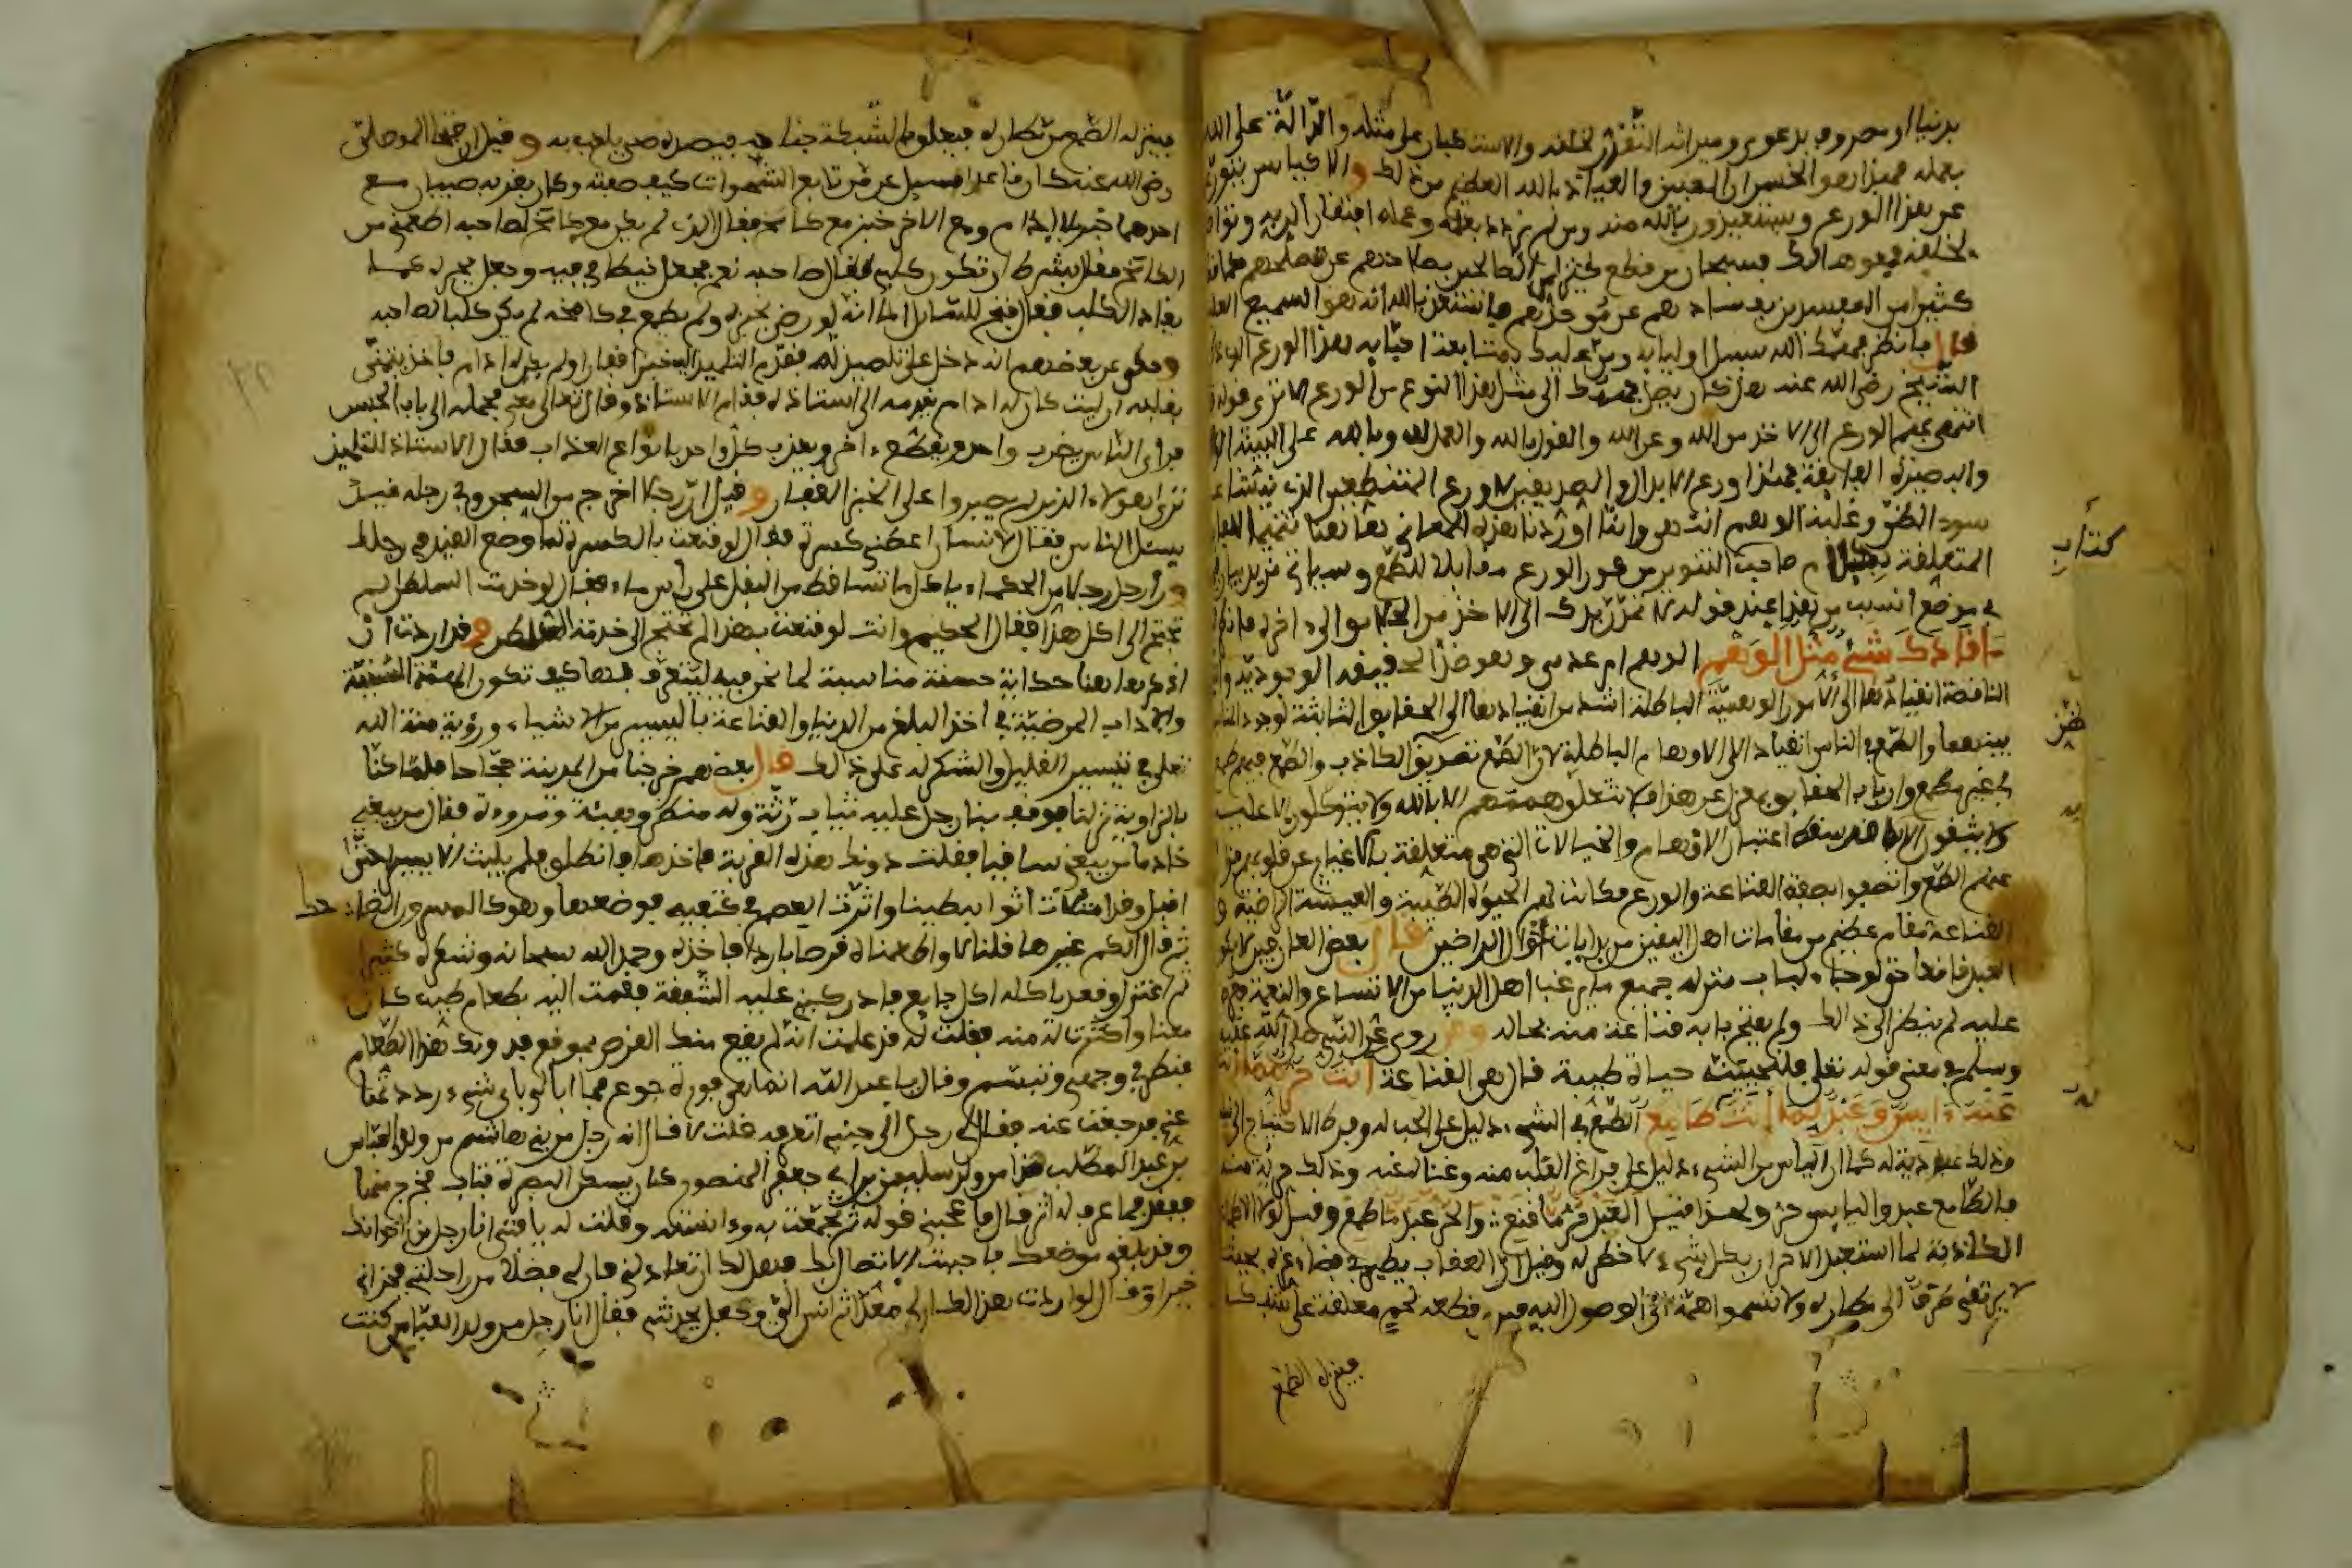 بدنيا او مصروف بدعوى وميراثه التعزز لخلقه والاستكبار على مثله والدالة على الله
بعمله فهذا هو الخسران المبين والعياذ بالله العظيم من ذلك والاكياس يتورعون
عن هذا الورع ويستعيذون بالله منه ومن لم يزدد بعلمه وعمله افتقارا لربه وتواضعا
لخلقه فهو هالك فسبحان من قطع كثيرا من الصالحين بصلاحهم عن مصلحهم كما قطع
كثيرا من المفسدين بفسادهم عن موجدهم فاستعذ بالله انه هو السميع العليم
فانظر فهمك الله سبيل اوليائه ومن عليك بمتابعة احبائه هذا الورع الذي ذكره
الشيخ رضي الله عنه هل كان يصل فهمك الى مثل هذا النوع من الورع الا ترى قوله قد
انتهى بهم الورع الى الاخذ من الله وعن الله والقول بالله والعمل لله وبالله على البينة الواضحة
والبصيرة الفائقة فهذا ورع الابدال والصديقين لا ورع المتنطعين الذي ينشأ عن
سوء الظن وغلبة الوهم انتهى وانما اوردنا هذه المعاني ها هنا تتميما للفائدة
المتعلقة بكلام صاحب التنوير من كون الورع مقابلا للطمع وسيأتي مزيد بيان
في موضع انسب من هذا عند قوله لا تمدن يدك الى الاخذ من الخلائق الى اخره
ما قادك شيء مثل الوهم الوهم امر عدمي وهو ضد الحقيقة الوجودية
الناقصة انقيادها الى الامور الوهمية الباطلة اشد من انقيادها الى الحقائق الثابتة لوجود
بينهما والطمع في الناس انقياد الى الاوهام الباطلة لان الطمع تصديق الظن الكاذب والطمع فيهم طمع
في غير مطمع وارباب الحقائق بمعزل عن هذا فلا تتعلق هممهم الا بالله ولا يتوكلون الا عليه
ولا يثقون الا به قد سقط اعتبار الاوهام والخيالات التي هي متعلقة بالاغيار عن قلوبهم فزال
عنهم الطمع واتصفوا بصفة القناعة والورع فكانت لهم الحيوة الطيبة والعيشة الراضية و
القناعة مقام عظيم من مقامات اهل اليقين من بدايات احوال الراضين قال بعض العارفين لا يكون
العبد قانعا حتى لو جاء لباب منزله جميع ما يرغب اهل الدنيا من الاتساع والنعيم فعرض
عليه لم ينظر الى ذلك ولم يفتح بابه قناعة منه بحاله وقد روي عن النبي صلى الله عليه
وسلم في معنى قوله تعالى فلنحيينه حياة طيبة قال هي القناعة انت حر مما انت
عنه ءايس وعبد لما انت طامع الطمع في الشيء دليل على الحب له وفرط الاحتياج اليه
وذلك عبودية له كما ان اليأس من الشيء دليل على فراغ القلب منه وغناه عنه وذلك حرية منه
فالطامع عبد واليايس حر ولهذا قيل العبد حر ما قنع والحر عبد ما طمع وقيل لولا الاطماع
الكاذبة لما استعبد الاحرار بكل شيء لا خطر له وقيل ان العقاب يطير في فضاء عزه بحيث
لا يرتقي طرف الى مطاره ولا تسموا همة الى الوصول اليه فيرى قطعة لحم معلقة على شبكة
فينزله الطمع
كتاب
فينزله الطمع من مطاره فيعلق بالشبكة جناحه فيصيده صبي يلعب به وقيل ان فتحا الموصلي
رضي الله عنه كان قاعدا فسيل عن من تابع الشهوات كيف صفته وكان بقربه صبيان مع
احدهما خبز بلا ادام ومع الاخر خبز مع كامخ فقال الذي لم يكن معه كامخ لصاحبه اطعمني من
الكامخ فقال بشرط ان تكون كلبي فقال صاحبه نعم فجعل خيطا في فيه وجعل يجره كما
يقاد الكلب فقال فتح للسائل اما انه لو رضي بخبزه ولم يطمع في كامخه لم يكن كلبا لصاحبه
وحكي عن بعضهم انه دخل على تلميذ له فقدم التلميذ اليه خبزا فقارا ولم يكن له ادام فاخذ يتمنى
بقلبه ان ليت كان له ادام يقدمه الى استاذه فقام الاستاذ وقال تعالى معي فحمله الى باب الحبس
فراى الناس يضرب واحد ويقطع ءاخر ويعذب كل واحد بانواع العذاب فقال الاستاذ للتلميذ
ترى هؤلاء الذين لم يصبروا على الخبز القفار وقيل ان رجلا اخرج من السجن وفي رجله قيد
يسئل الناس فقال لانسان اعطني كسرة فقال لو قنعت بالكسرة لما وضع القيد في رجلك
ورأى رجل رجلا من الحكماء ياكل ما تساقط من البقل على رأس ماء فقال لو خدمت السلطان لم
تحتج الى اكل هذا فقال الحكيم وانت لو قنعت بهذا لم تحتج الى خدمة السلطان وقد اردت ان
اذكر ها هنا حكاية حسنة مناسبة لما نحن فيه ليتعرف منها كيف تكون الهمة السنية
والاداب المرضية في اخذ البلغ من الدنيا والقناعة باليسير من الاشياء ورؤية منة الله
تعلى في تيسير القليل والشكر له على ذلك قال بعضهم خرجنا من المدينة حجاجا فلما كنا
بالزاوية نزلنا فوقف بنا رجل عليه ثياب رثة وله منظر وهيئة ومروءة فقال من يبغي
خادما من يبغي ساقيا فقلت دونك هذه القربة فاخذها فانطلق فلم يلبث الا يسيرا حتى
اقبل وقد امتلأت اثوابه طينا واثرت العصي في كتفيه فوضعها وهو كالمسرور الضاحك
ثم قال الكم غيرها قلنا لا واطعمناه قرصا باردا فاخذه وحمد الله سبحانه وشكره كثيرا
ثم اعتزل وقعد ياكله اكل جايع فادركتني عليه الشفقة فقمت اليه بطعام طيب كان
معنا واكثرت له منه فقلت له قد علمت انه لم يقع منك القرص بموقع فدونك هذا الطعام
فنظر في وجهي وتبسم وقال يا عبد الله انما هي فورة جوع فما ابالي باي شيء رددتها
عني فرجعت عنه فقال لي رجل الى جنبي اتعرفه قلت لا قال انه رجل من بني هاشم من ولد العباس
بن عبد المطلب هذا من ولد سليمن بن ابي جعفر المنصور كان يسكن البصرة فتاب فخرج منها
ففقد فما عرف له اثر قال فاعجبني قوله ثم اجتمعت به وءانسته وقلت له يا فتى انا رجل من اخوانك
وقد بلغني موضعك فاجبت الاتصال بك فهل لك ان تعادلني فان لي فضلا من راحلتي فجزاني
خيرا وقال لو اردت هذا لكان لي معدا ثم انس الي وجعل يحدثني فقال انا رجل من ولد العباس كنت